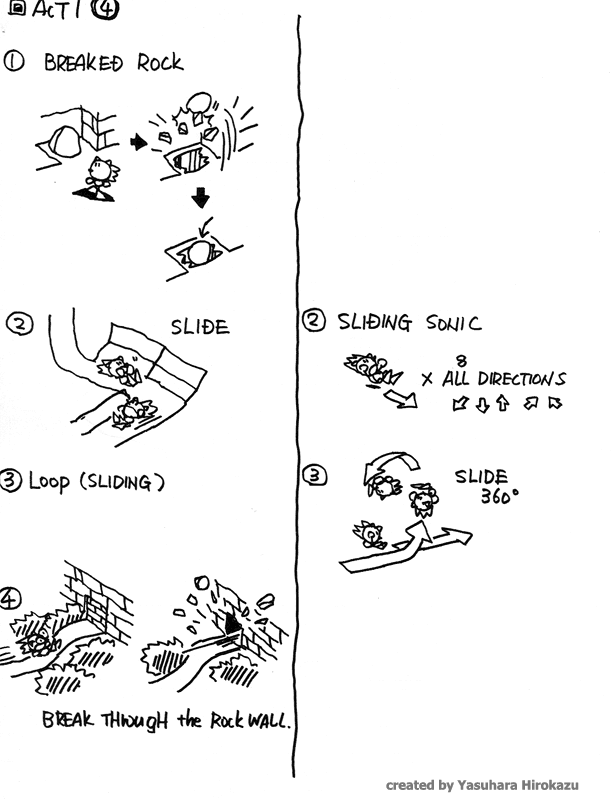 回 ACT 1 ④
① BREAKED ROCK
② SLIDE
③ LOOP (SLIDING)
④
BREAK THROUGH the ROCK WALL.
② SLIDING SONIC
8
× ALL DIRECTIONS
③ SLIDE
360°
created by Yasuhara Hirokazu